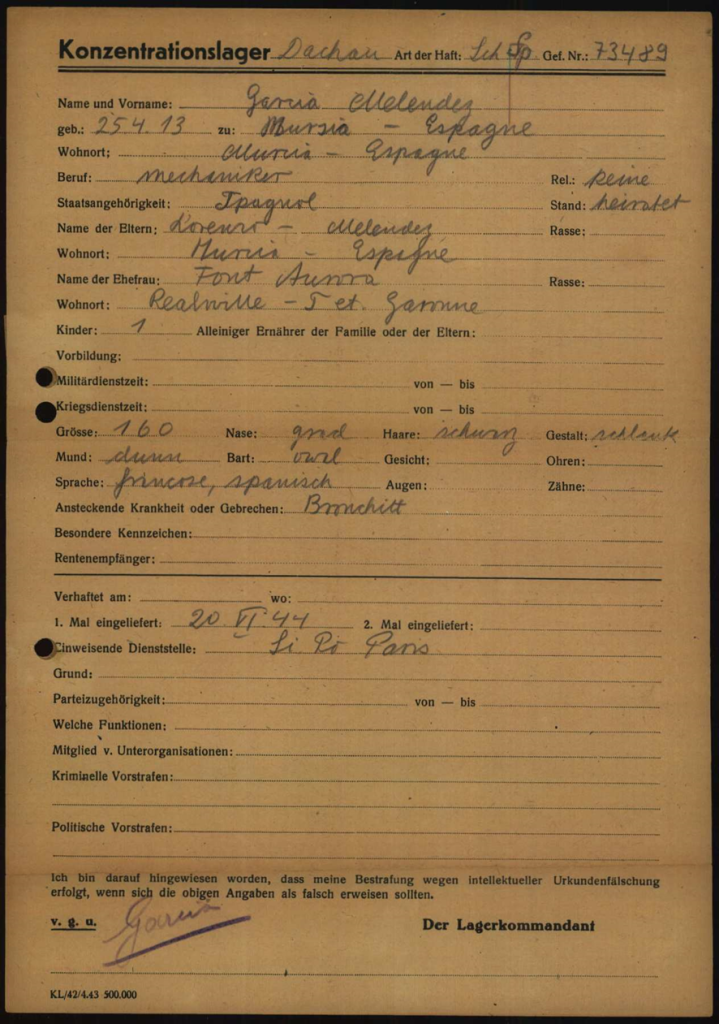 Konzentrationslager Dachau Art der Haft: Sch Sp Gef. Nr.: 73489
Name und Vorname: Garcia Melendez
geb.: 25 4. 13 zu: Mursia - Espagne
Wohnort: Murcia - Espagne
Beruf: Mechaniker Rel.: keine
Staatsangehörigkeit: Spagnol Stand: heiratet
Name der Eltern: Lorenzo - Melendez Rasse:
Wohnort: Murcia - Espagne
Name der Ehefrau: Font Aurora Rasse:
Wohnort: Realville - T et. Garonne
Kinder: 1 Alleiniger Ernährer der Familie oder der Eltern:
Vorbildung:
Militärdienstzeit: von — bis
Kriegsdienstzeit: von — bis
Grösse: 160 Nase: grad Haare: schwarz Gestalt: schlank
Mund: dunn Bart: oval Gesicht: Ohren:
Sprache: francose, spanisch Augen: Zähne:
Ansteckende Krankheit oder Gebrechen: Bronchitt
Besondere Kennzeichen:
Rentenempfänger:
Verhaftet am: wo:
1. Mal eingeliefert: 20 VI. 44 2. Mal eingeliefert:
Einweisende Dienststelle: Si Po Paris
Grund:
Parteizugehörigkeit: von — bis
Welche Funktionen:
Mitglied v. Unterorganisationen:
Kriminelle Vorstrafen:
Politische Vorstrafen:
Ich bin darauf hingewiesen worden, dass meine Bestrafung wegen intellektueller Urkundenfälschung
erfolgt, wenn sich die obigen Angaben als falsch erweisen sollten.
v. g. u. Garcia Der Lagerkommandant
KL/42/4.43 500.000